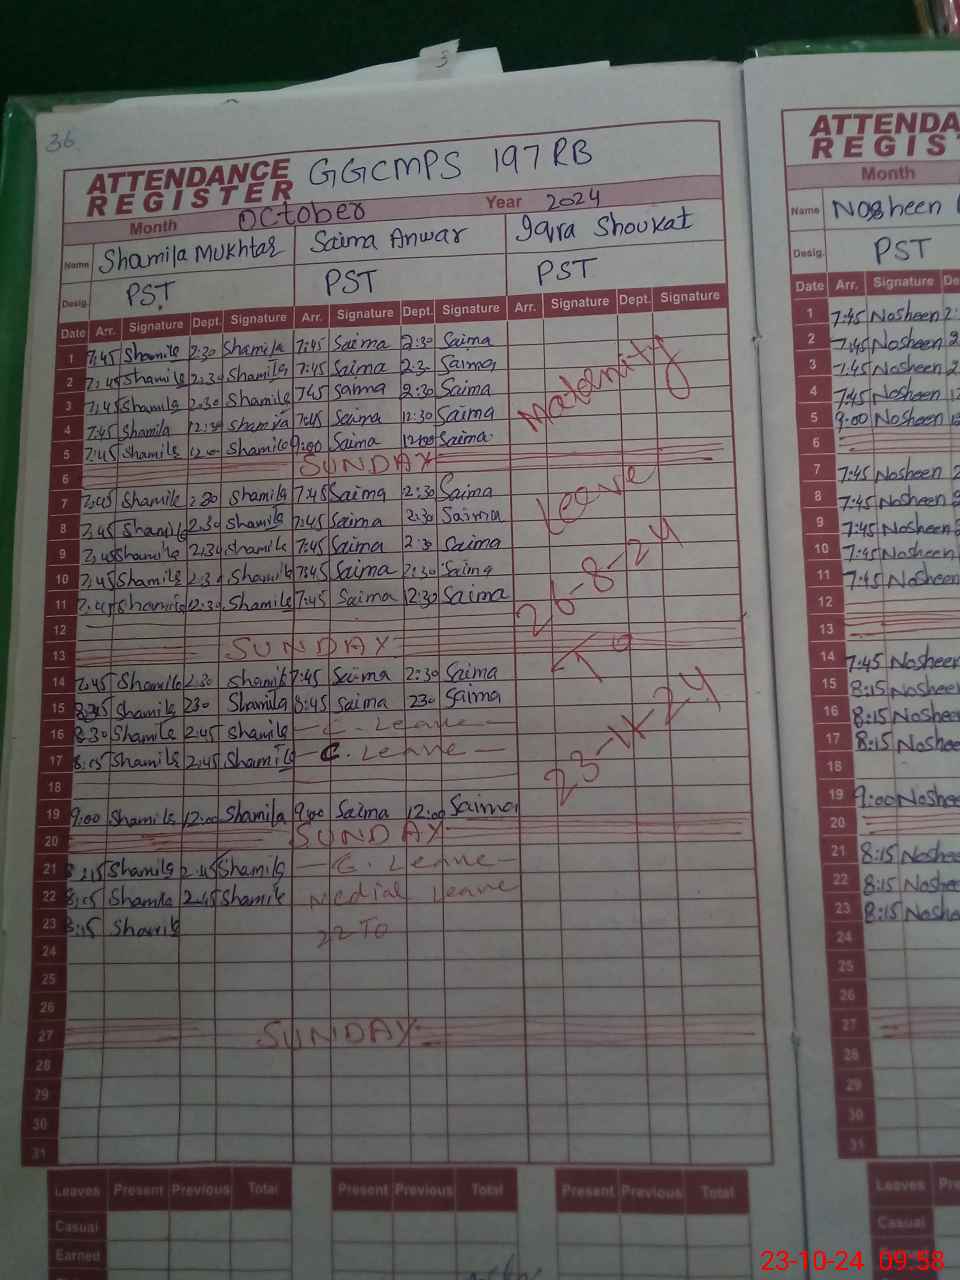 36
ATTENDANCE REGISTER GGCMPS 197 RB
Month October Year 2024
Name Shamila Mukhtar Saima Anwar Iqra Shoukat
Desig. PST PST PST
Date Arr. Signature Dept. Signature Arr. Signature Dept. Signature Arr. Signature Dept. Signature
1 7:45 Shamila 2:30 Shamila 7:45 Saima 2:30 Saima
2 7:45 Shamila 2:30 Shamila 7:45 Saima 2:3 Saima
3 7:45 Shamila 2:30 Shamila 745 Saima 2:30 Saima
4 7:45 Shamila 12:30 Shamila 7:45 Saima 12:30 Saima
5 7:45 Shamila 12:0 Shamila 9:00 Saima 12:00 Saima
6 SUNDAY
7 7:45 Shamila 2:30 Shamila 7:45 Saima 2:30 Saima
8 7:45 Shamila 2:30 Shamila 7:45 Saima 2:30 Saima
9 7:45 Shamila 2:30 Shamila 7:45 Saima 2:30 Saima
10 7:45 Shamila 2:30 Shamila 7:45 Saima 2:30 Saima
11 7:45 Shamila 12:30 Shamila 7:45 Saima 12:30 Saima
12
13 SUNDAY
14 7:45 Shamila 2:30 Shamila 7:45 Saima 2:30 Saima
15 Shamila 230 Shamila 8:45 Saima 230 Saima
16 8:30 Shamila 2:45 Shamila - C. Leave -
17 8:15 Shamila 2:45 Shamila - C. Leave -
18
19 9:00 Shamila 12:00 Shamila 9:00 Saima 12:00 Saima
20 SUNDAY
21 8:15 Shamila 2:45 Shamila - C. Leave -
22 8:15 Shamila 2:45 Shamila Medial Leave
23 8:15 Shamila 22 To
24
25
26
27 SUNDAY
28
29
30
31
Maternity
Leave
26-8-24
To
Leaves Present Previous Total Present Previous Total Present Previous Total
Casual
Earned
ATTENDA
REGIST
Month
Name Nosheen
Desig. PST
Date Arr. Signature De
1 7:45 Nosheen 2:
2 7:45 Nosheen 2
3 7:45 Nosheen 2
4 7:45 Nosheen 12
5 9:00 Nosheen
6
7 7:45 Nosheen 2
8 7:45 Nosheen
9 7:45 Nosheen
10 7:45 Nosheen
11 7:45 Nosheen
12
13
14 7:45 Nosheen
15 8:15 Nosheen
16 8:15 Nosheen
17 8:15 Noshee
18
19 9:00 Noshee
20
21 8:15 Noshee
22 8:15 Noshee
23 8:15 Noshee
24
25
26
27
28
29
30
31
Leaves Pre
Casual
23-10-24 09:58